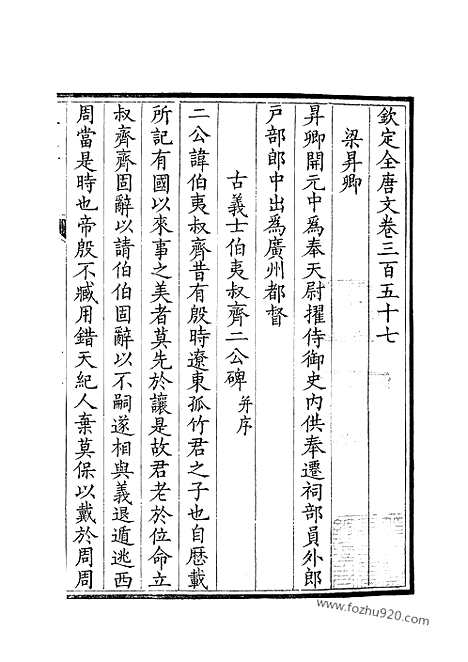 欽定全唐文卷三百五十七
梁昇卿
昇卿開元中爲奉天尉擢侍御史内供奉遷祠部員外郎
戸部郎中出爲廣州都督
古義士伯夷叔齊二公碑并序
二公諱伯夷叔齊昔有殷時遼東孤竹君之子也自厯載
所記有國以來事之美者莫先於讓是故君老於位命立
叔齊齊固辭以請伯伯固辭以不嗣遂相與義退遁逃西
周當是時也帝殷不臧用錯天紀人棄莫保以戴於周周
www.fozhu920.com